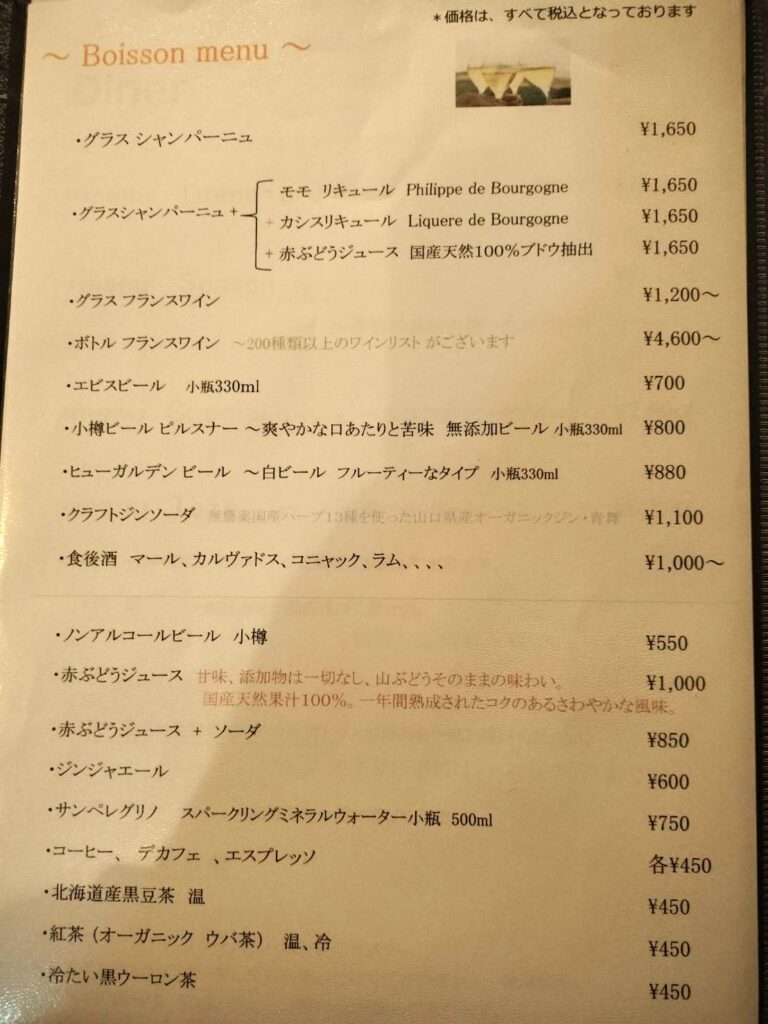 ＊価格は、すべて税込となっております
～ Boisson menu ～
・グラス シャンパーニュ ¥1,650
・グラスシャンパーニュ +
モモ リキュール Philippe de Bourgogne ¥1,650
+ カシスリキュール Liquere de Bourgogne ¥1,650
+ 赤ぶどうジュース 国産天然100%ブドウ抽出 ¥1,650
・グラス フランスワイン ¥1,200～
・ボトル フランスワイン ～200種類以上のワインリスト がございます ¥4,600～
・エビスビール 小瓶330ml ¥700
・小樽ビール ピルスナー ～爽やかな口あたりと苦味 無添加ビール 小瓶330ml ¥800
・ヒューガルデン ビール ～白ビール フルーティーなタイプ 小瓶330ml ¥880
・クラフトジンソーダ 無農薬国産ハーブ13種を使った山口県産オーガニックジン・青舞 ¥1,100
・食後酒 マール、カルヴァドス、コニャック、ラム、、、、 ¥1,000～
・ノンアルコールビール 小樽 ¥550
・赤ぶどうジュース 甘味、添加物は一切なし、山ぶどうそのままの味わい。 ¥1,000
国産天然果汁100%。一年間熟成されたコクのあるさわやかな風味。
・赤ぶどうジュース + ソーダ ¥850
・ジンジャエール ¥600
・サンペレグリノ スパークリングミネラルウォーター小瓶 500ml ¥750
・コーヒー、 デカフェ 、エスプレッソ 各¥450
・北海道産黒豆茶 温 ¥450
・紅茶 (オーガニック ウバ茶) 温、冷 ¥450
・冷たい黒ウーロン茶 ¥450